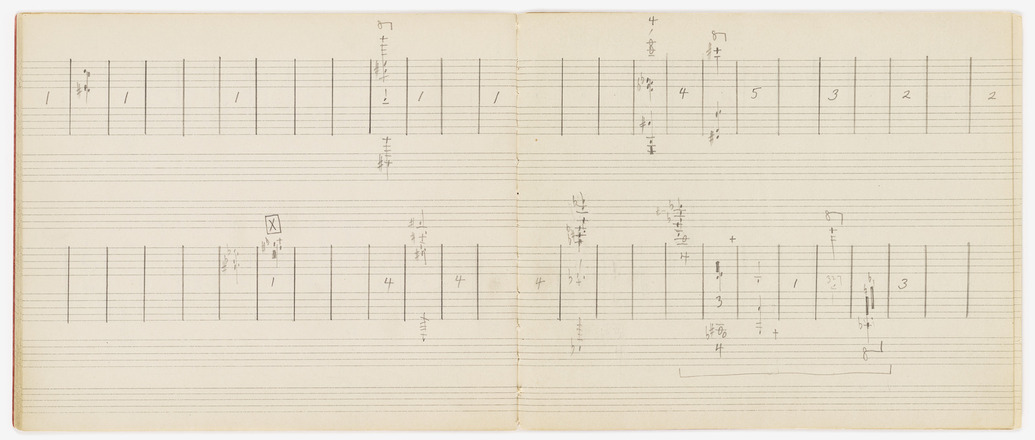 8 4 8
1 1 1 1 1 4 5 3 2 2
X 8
1 4 4 4 3 1 3
4
4
8